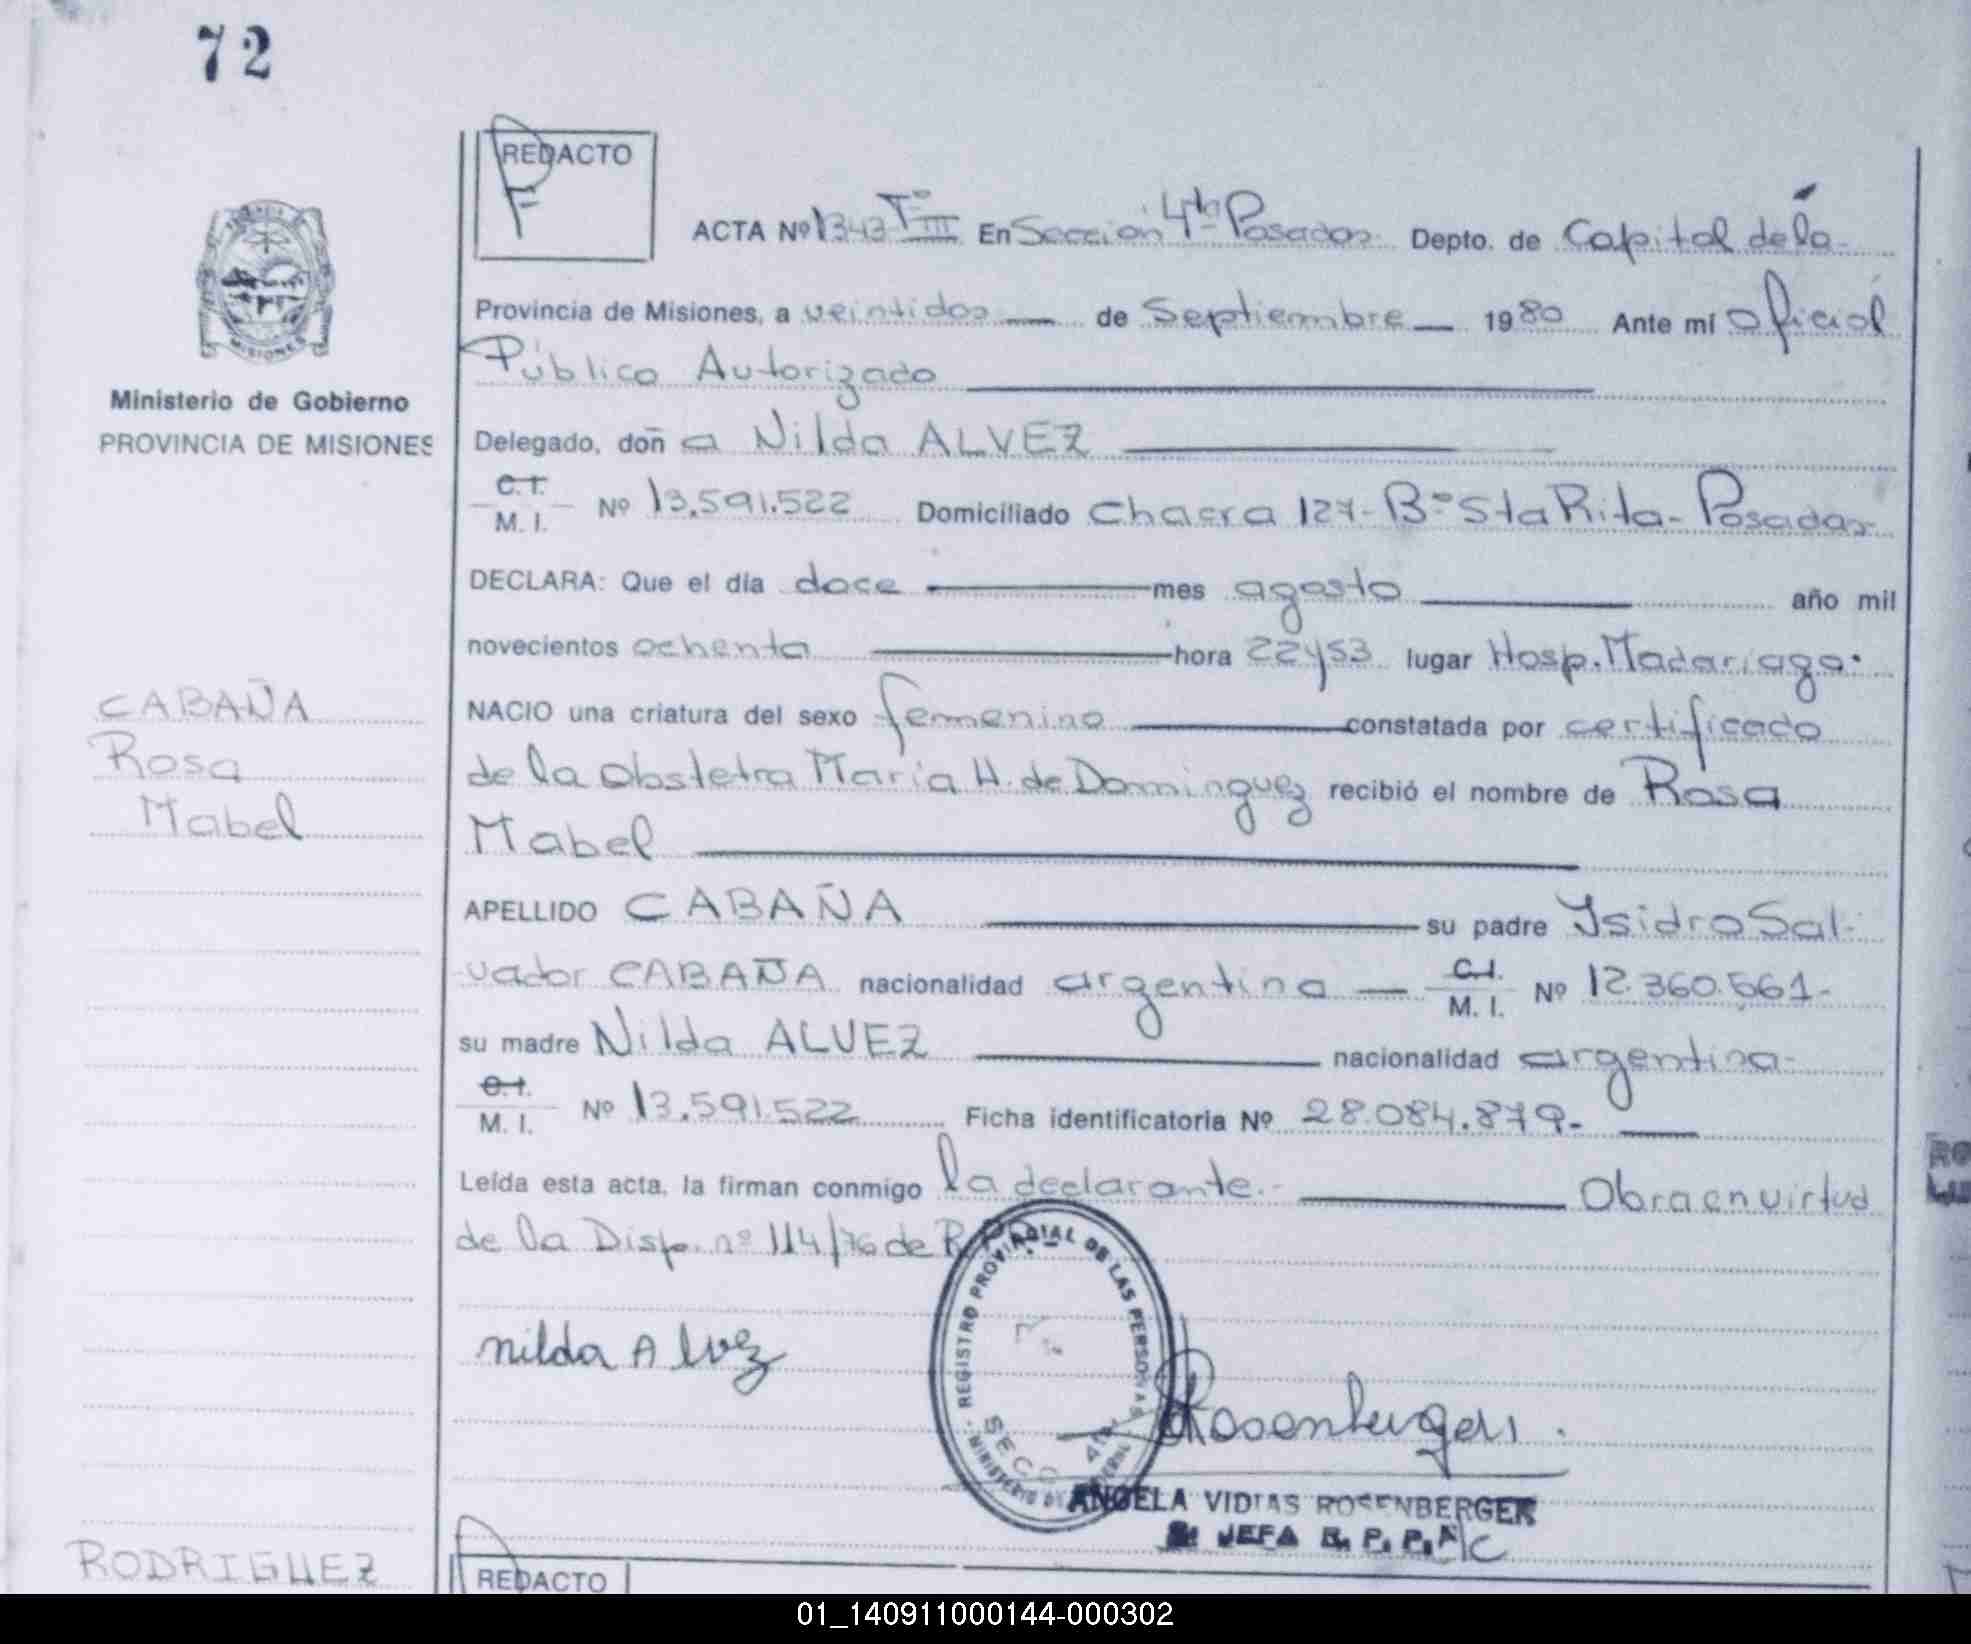 72
REDACTO
F
ACTA Nº 1343 Tº III En Sección 4ta Posadas Depto. de Capital de la
Provincia de Misiones, a veintidos de Septiembre 1980 Ante mí Oficial
Público Autorizado
MISIONES
Ministerio de Gobierno
PROVINCIA DE MISIONES
Delegado, doñ a Nilda ALVEZ
C.I.
M. I. Nº 13.591.522 Domiciliado Chacra 127-Bº Sta Rita-Posadas
DECLARA: Que el día doce mes agosto año mil
novecientos ochenta hora 22y53 lugar Hosp. Madariaga.
CABAÑA
Rosa
Mabel
NACIO una criatura del sexo femenino constatada por certificado
de la Obstetra María H. de Dominguez recibió el nombre de Rosa
Mabel
APELLIDO CABAÑA su padre Ysidro Sal-
vador CABAÑA nacionalidad argentina C.I.
M. I. Nº 12.360.561-
su madre Nilda ALVEZ nacionalidad argentina-
C.I.
M. I. Nº 13.591.522 Ficha identificatoria Nº 28.084.879-
Leída esta acta, la firman conmigo la declarante.- Obra en virtud
de la Disp. nº 114/76 de R.P.P.-
nilda Alvez
REGISTRO PROVINCIAL DE LAS PERSONAS
SECC 4ta
MINISTERIO DE GOBIERNO
Rosenberger
ANGELA VIDIAS ROSENBERGER
JEFA R. P. P. A/C
RODRIGUEZ
REDACTO
01_140911000144-000302